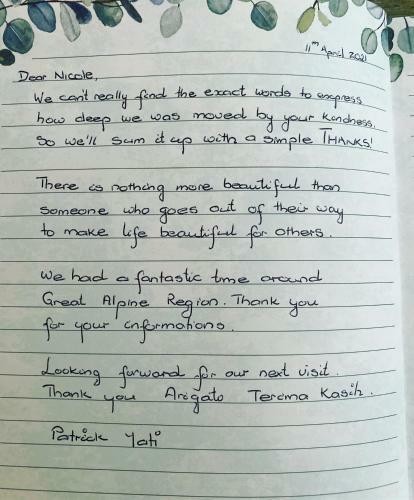 11th April 2021
Dear Nicole,
We can't really find the exact words to express
how deep we was moved by your kindness,
so we'll sum it up with a simple THANKS!
There is nothing more beautiful than
someone who goes out of their way
to make life beautiful for others.
We had a fantastic time around
Great Alpine Region. Thank you
for your informations.
Looking forward for our next visit.
Thank you Arigato Terima Kasih.
Patrick Yati